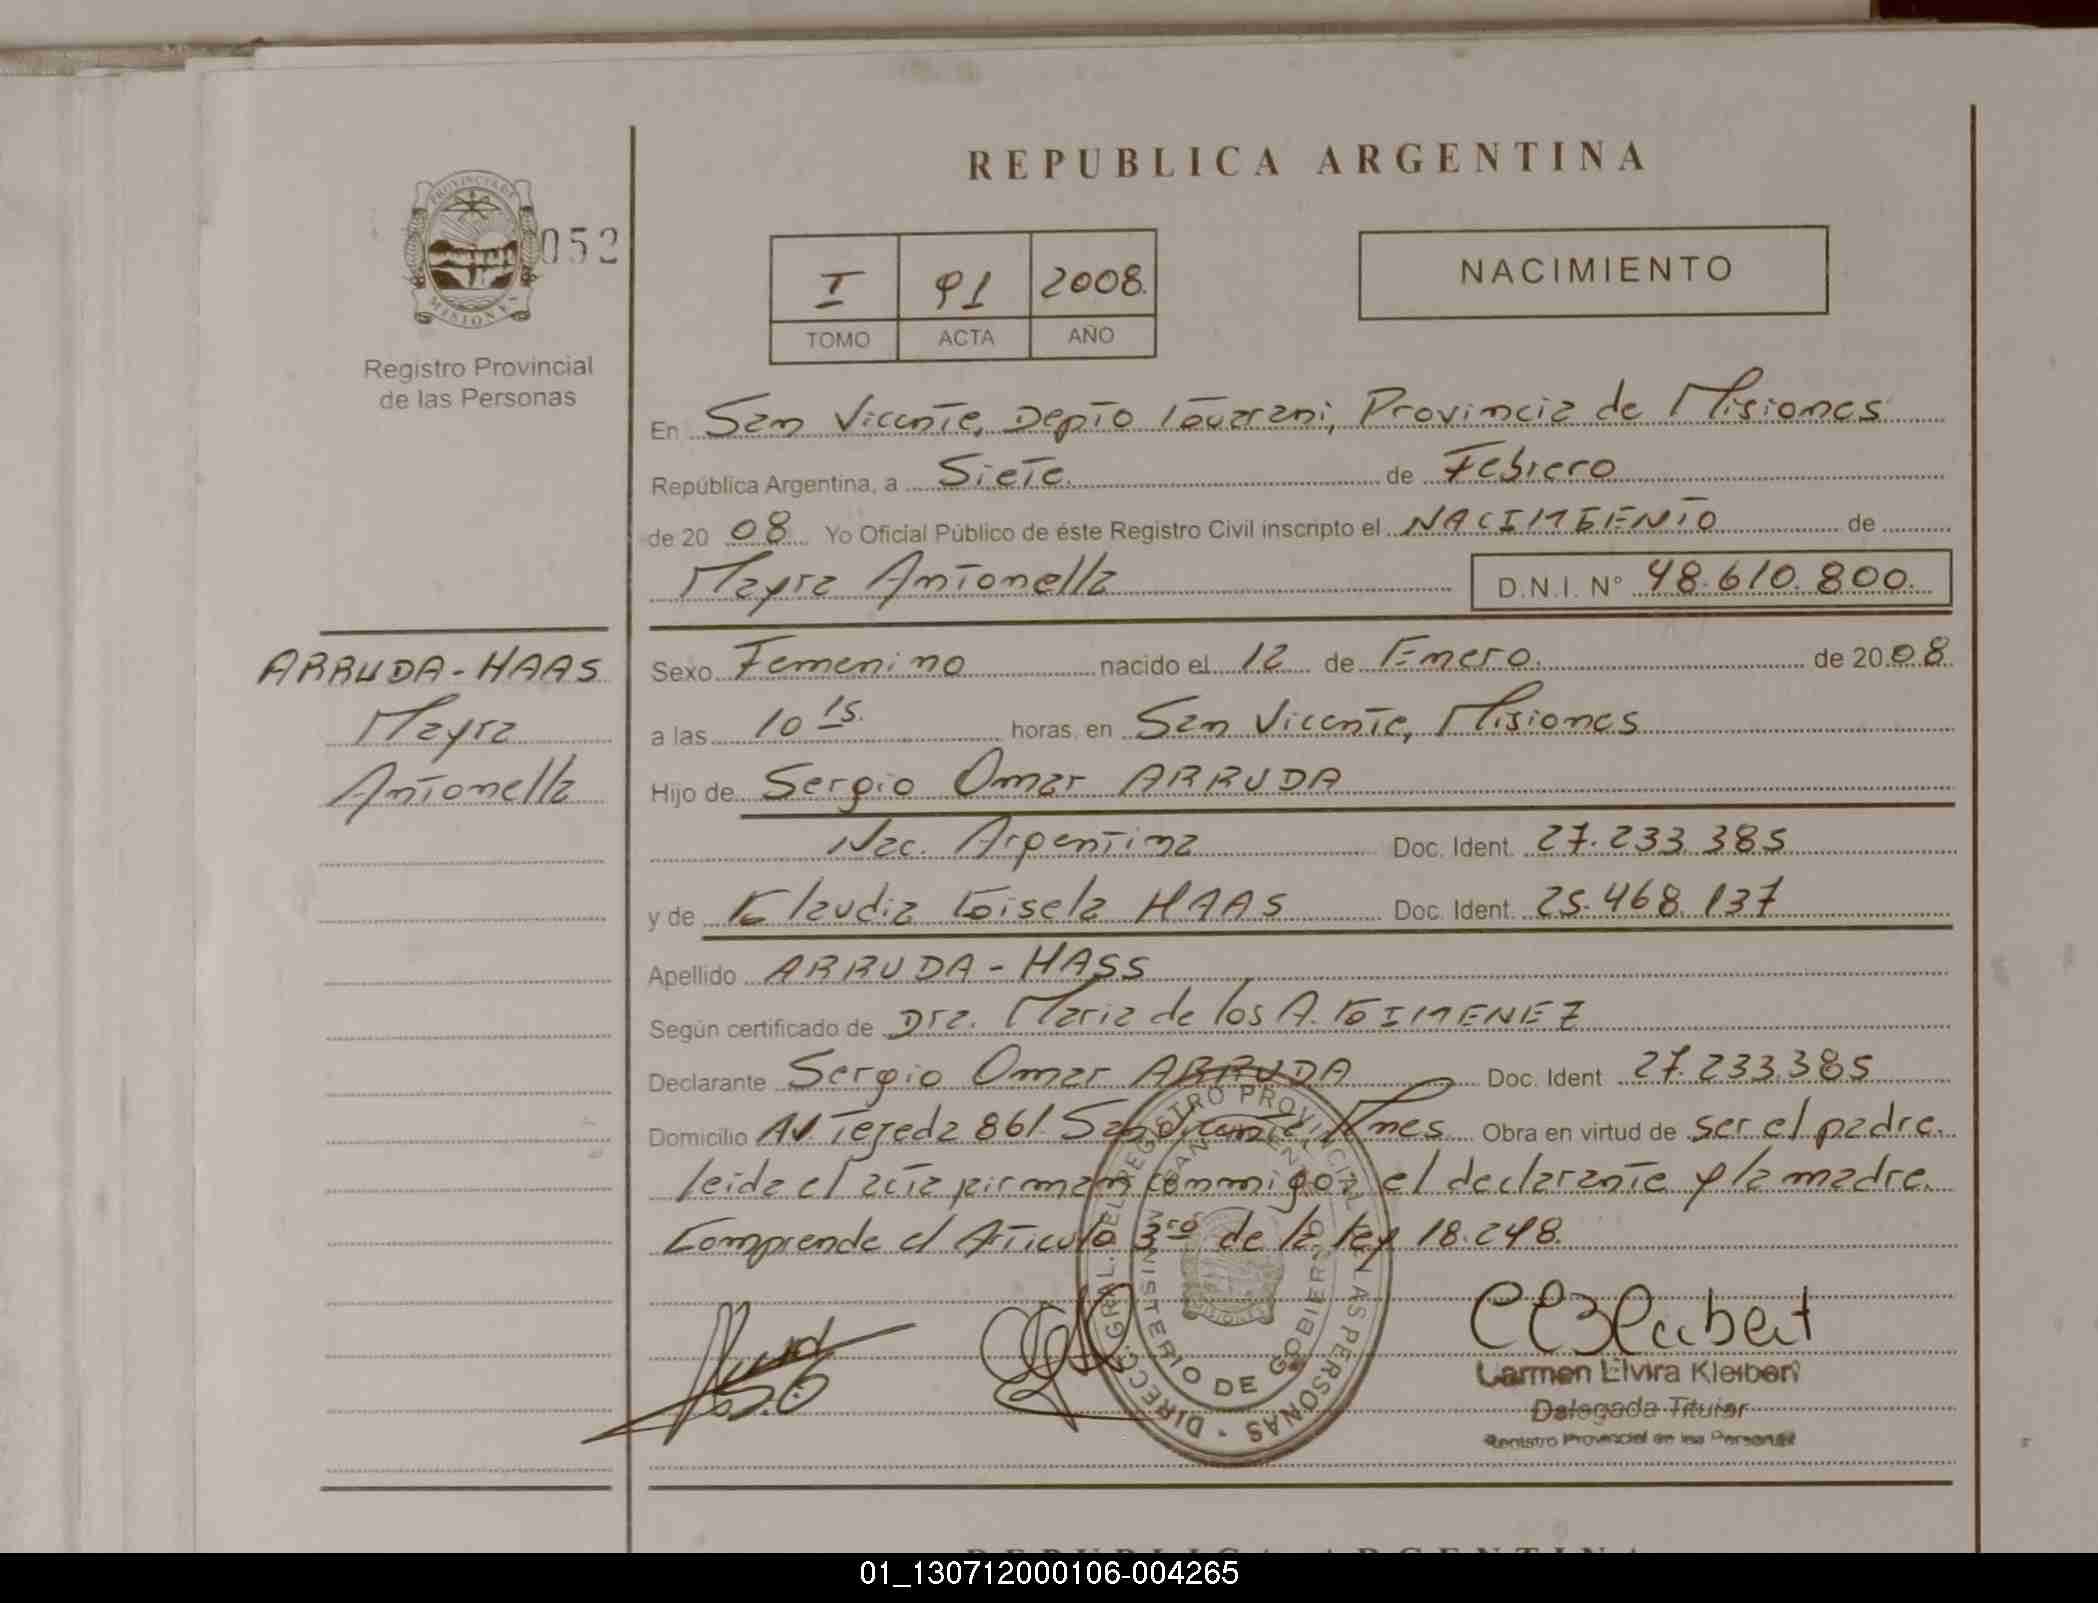 REPUBLICA ARGENTINA
PROVINCIA DE
MISIONES
052
Registro Provincial
de las Personas
I 91 2008.
TOMO ACTA AÑO
NACIMIENTO
En San Vicente, Depto Guarani, Provincia de Misiones
República Argentina, a Siete. de Febrero
de 20 08 Yo Oficial Público de éste Registro Civil inscripto el NACIMIENTO de
Mayra Antonella D.N.I. N° 48.610.800.
ARRUDA-HAAS
Mayra
Antonella
Sexo Femenino nacido el 12 de Enero. de 20 08
a las 10 15. horas, en San Vicente, Misiones
Hijo de Sergio Omar ARRUDA
Nac. Argentina Doc. Ident. 27.233.385
y de Claudia Gisela HAAS Doc. Ident. 25.468.137
Apellido ARRUDA-HASS
Según certificado de Dra. Maria de los A. GIMENEZ
Declarante Sergio Omar ARRUDA Doc. Ident 27.233.385
Domicilio AV Tejeda 861. San Vicente, Mnes Obra en virtud de ser el padre.
leida el acta firman conmigo, el declarante y la madre.
Comprende el Articulo 3ro de la ley 18.248.
DIRECC. GRAL. DEL REGISTRO PROVINCIAL DE LAS PERSONAS
MINISTERIO DE GOBIERNO
MISIONES
Carmen Elvira Kleibert
Delegada Titular
Registro Provincial de las Personas
REPUBLICA ARGENTINA
01_130712000106-004265